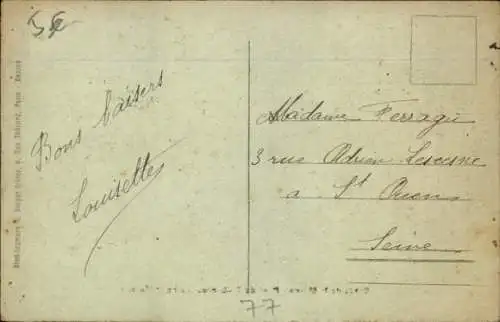 5€
Bons baisers
Louisette
Madame Ferragu
3 rue Adrien Lesesne
a St Ouen
Seine
77